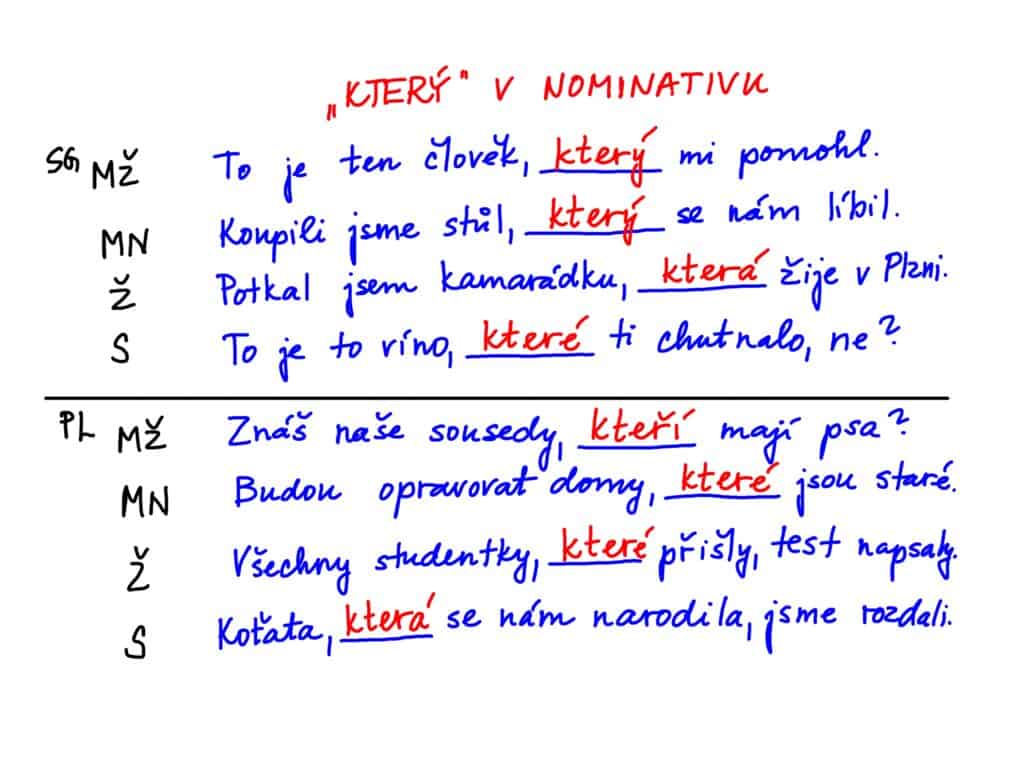 „KTERÝ" V NOMINATIVU
SG MŽ To je ten člověk, který mi pomohl.
MN Koupili jsme stůl, který se nám líbil.
Ž Potkal jsem kamarádku, která žije v Plzni.
S To je to víno, které ti chutnalo, ne?
PL MŽ Znáš naše sousedy, kteří mají psa?
MN Budou opravovat domy, které jsou staré.
Ž Všechny studentky, které přišly, test napsaly.
S Koťata, která se nám narodila, jsme rozdali.